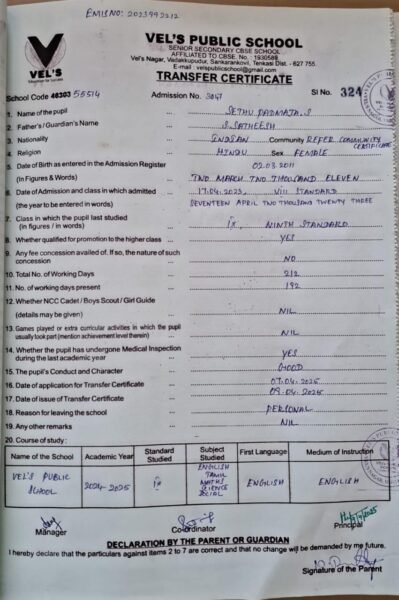 EMIS NO: 2023992212
VEL'S
VEL'S PUBLIC SCHOOL
SENIOR SECONDARY CBSE SCHOOL
AFFILIATED TO CBSE. No. : 1930589
Vel's Nagar, Vadakkupudur, Sankarankovil, Tenkasi Dist. - 627 755.
E-mail : velspublicschool@gmail.com
TRANSFER CERTIFICATE
School Code 48303 55514 Admission No. 3047 Sl No. 324
1. Name of the pupil ... SETHU PADMAJA.S
2. Father's / Guardian's Name ... S.SATHEESH
3. Nationality ... INDIAN Community REFER COMMUNITY CERTIFICATE
4. Religion ... HINDU Sex FEMALE
5. Date of Birth as entered in the Admission Register 02.03.2011
(In Figures & Words) ... TWO MARCH TWO THOUSAND ELEVEN
6. Date of Admission and class in which admitted ... 17.04.2023, VIII STANDARD
(the year to be entered in words) SEVENTEEN APRIL TWO THOUSAND TWENTY THREE
7. Class in which the pupil last studied
(in figures / in words) ... IX, NINTH STANDARD
8. Whether qualified for promotion to the higher class ... YES
9. Any fee concession availed of. If so, the nature of such
concession ... NO
10. Total No. of Working Days ... 212
11. No. of working days present ... 192
12. Whether NCC Cadet / Boys Scout / Girl Guide
(details may be given) ... NIL
13. Games played or extra curricular activities in which the pupil
usually took part (mention achievement level therein) ... NIL
14. Whether the pupil has undergone Medical Inspection
during the last academic year ... YES
15. The pupil's Conduct and Character ... GOOD
16. Date of application for Transfer Certificate ... 07.04.2025
17. Date of issue of Transfer Certificate ... 09.04.2025
18. Reason for leaving the school ... PERSONAL
19. Any other remarks ... NIL
20. Course of study :
Name of the School Academic Year Standard Studied Subject Studied First Language Medium of Instruction
VEL'S PUBLIC SCHOOL 2024-2025 IX ENGLISH TAMIL MATHS SCIENCE SOCIAL ENGLISH ENGLISH
Manager Co-ordinator Principal
DECLARATION BY THE PARENT OR GUARDIAN
I hereby declare that the particulars against items 2 to 7 are correct and that no change will be demanded by me future.
Signature of the Parent